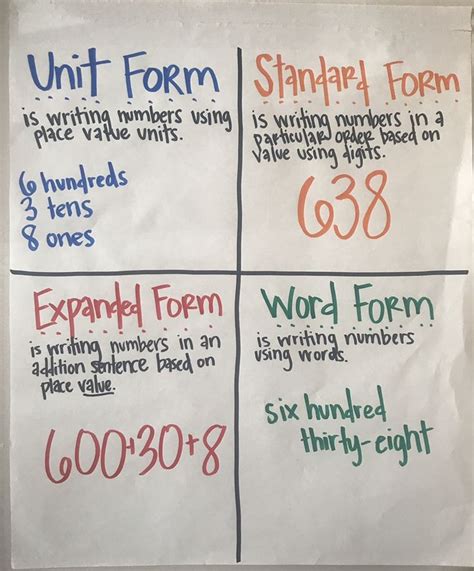 Unit Form
is writing numbers using
place value units.
6 hundreds
3 tens
8 ones
Standard Form
is writing numbers in a
particular order based on
value using digits.
638
Expanded Form
is writing numbers in an
addition sentence based on
place value.
600+30+8
Word Form
is writing numbers
using words.
six hundred
thirty-eight